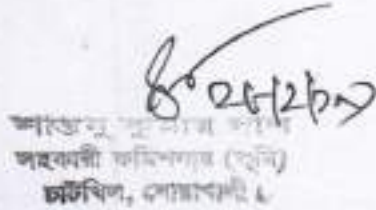 শান্তনু কুমার দাশ
সহকারী কমিশনার (ভূমি)
চাটখিল, নোয়াখালী।